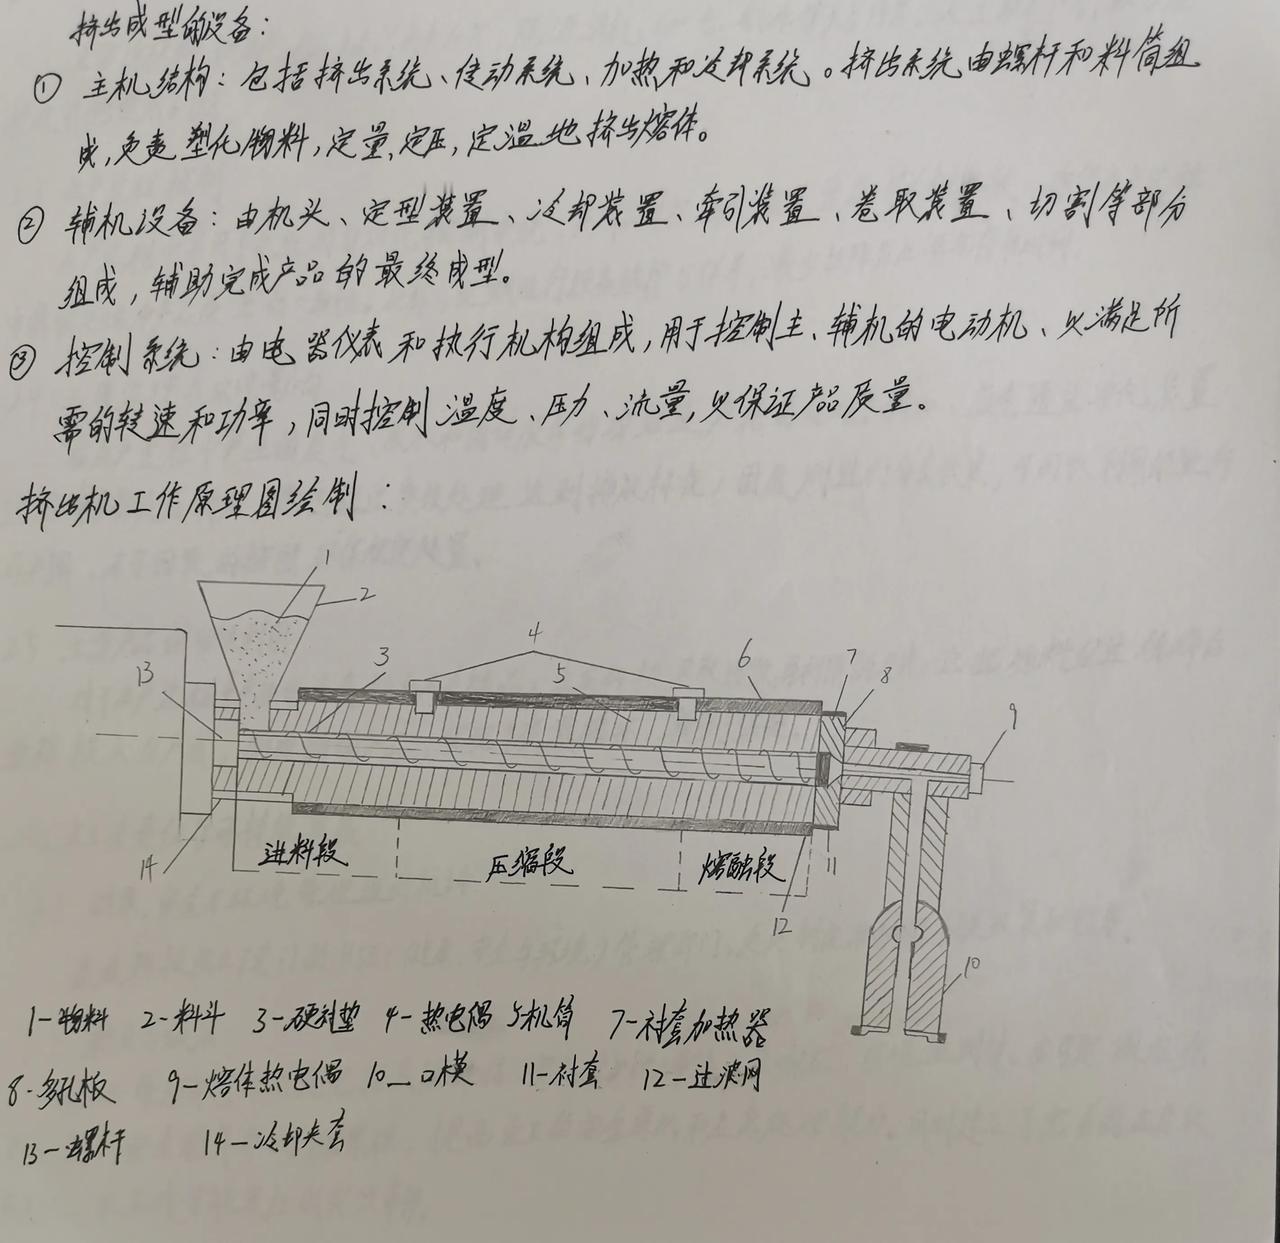 挤出成型的设备：
① 主机结构：包括挤出系统、传动系统、加热和冷却系统。挤出系统由螺杆和料筒组
成，负责塑化物料，定量，定压，定温地挤出熔体。
② 辅机设备：由机头、定型装置、冷却装置、牵引装置、卷取装置、切割等部分
组成，辅助完成产品的最终成型。
③ 控制系统：由电器仪表和执行机构组成，用于控制主、辅机的电动机、以满足所
需的转速和功率，同时控制温度、压力、流量，以保证产品质量。
挤出机工作原理图绘制：
1
2
3
4
5
6
7
8
9
13
14
进料段
压缩段
熔融段
11
12
10
1-物料 2-料斗 3-硬衬垫 4-热电偶 5机筒 7-衬套加热器
8-多孔板 9-熔体热电偶 10-口模 11-衬套 12-过滤网
13-螺杆 14-冷却夹套